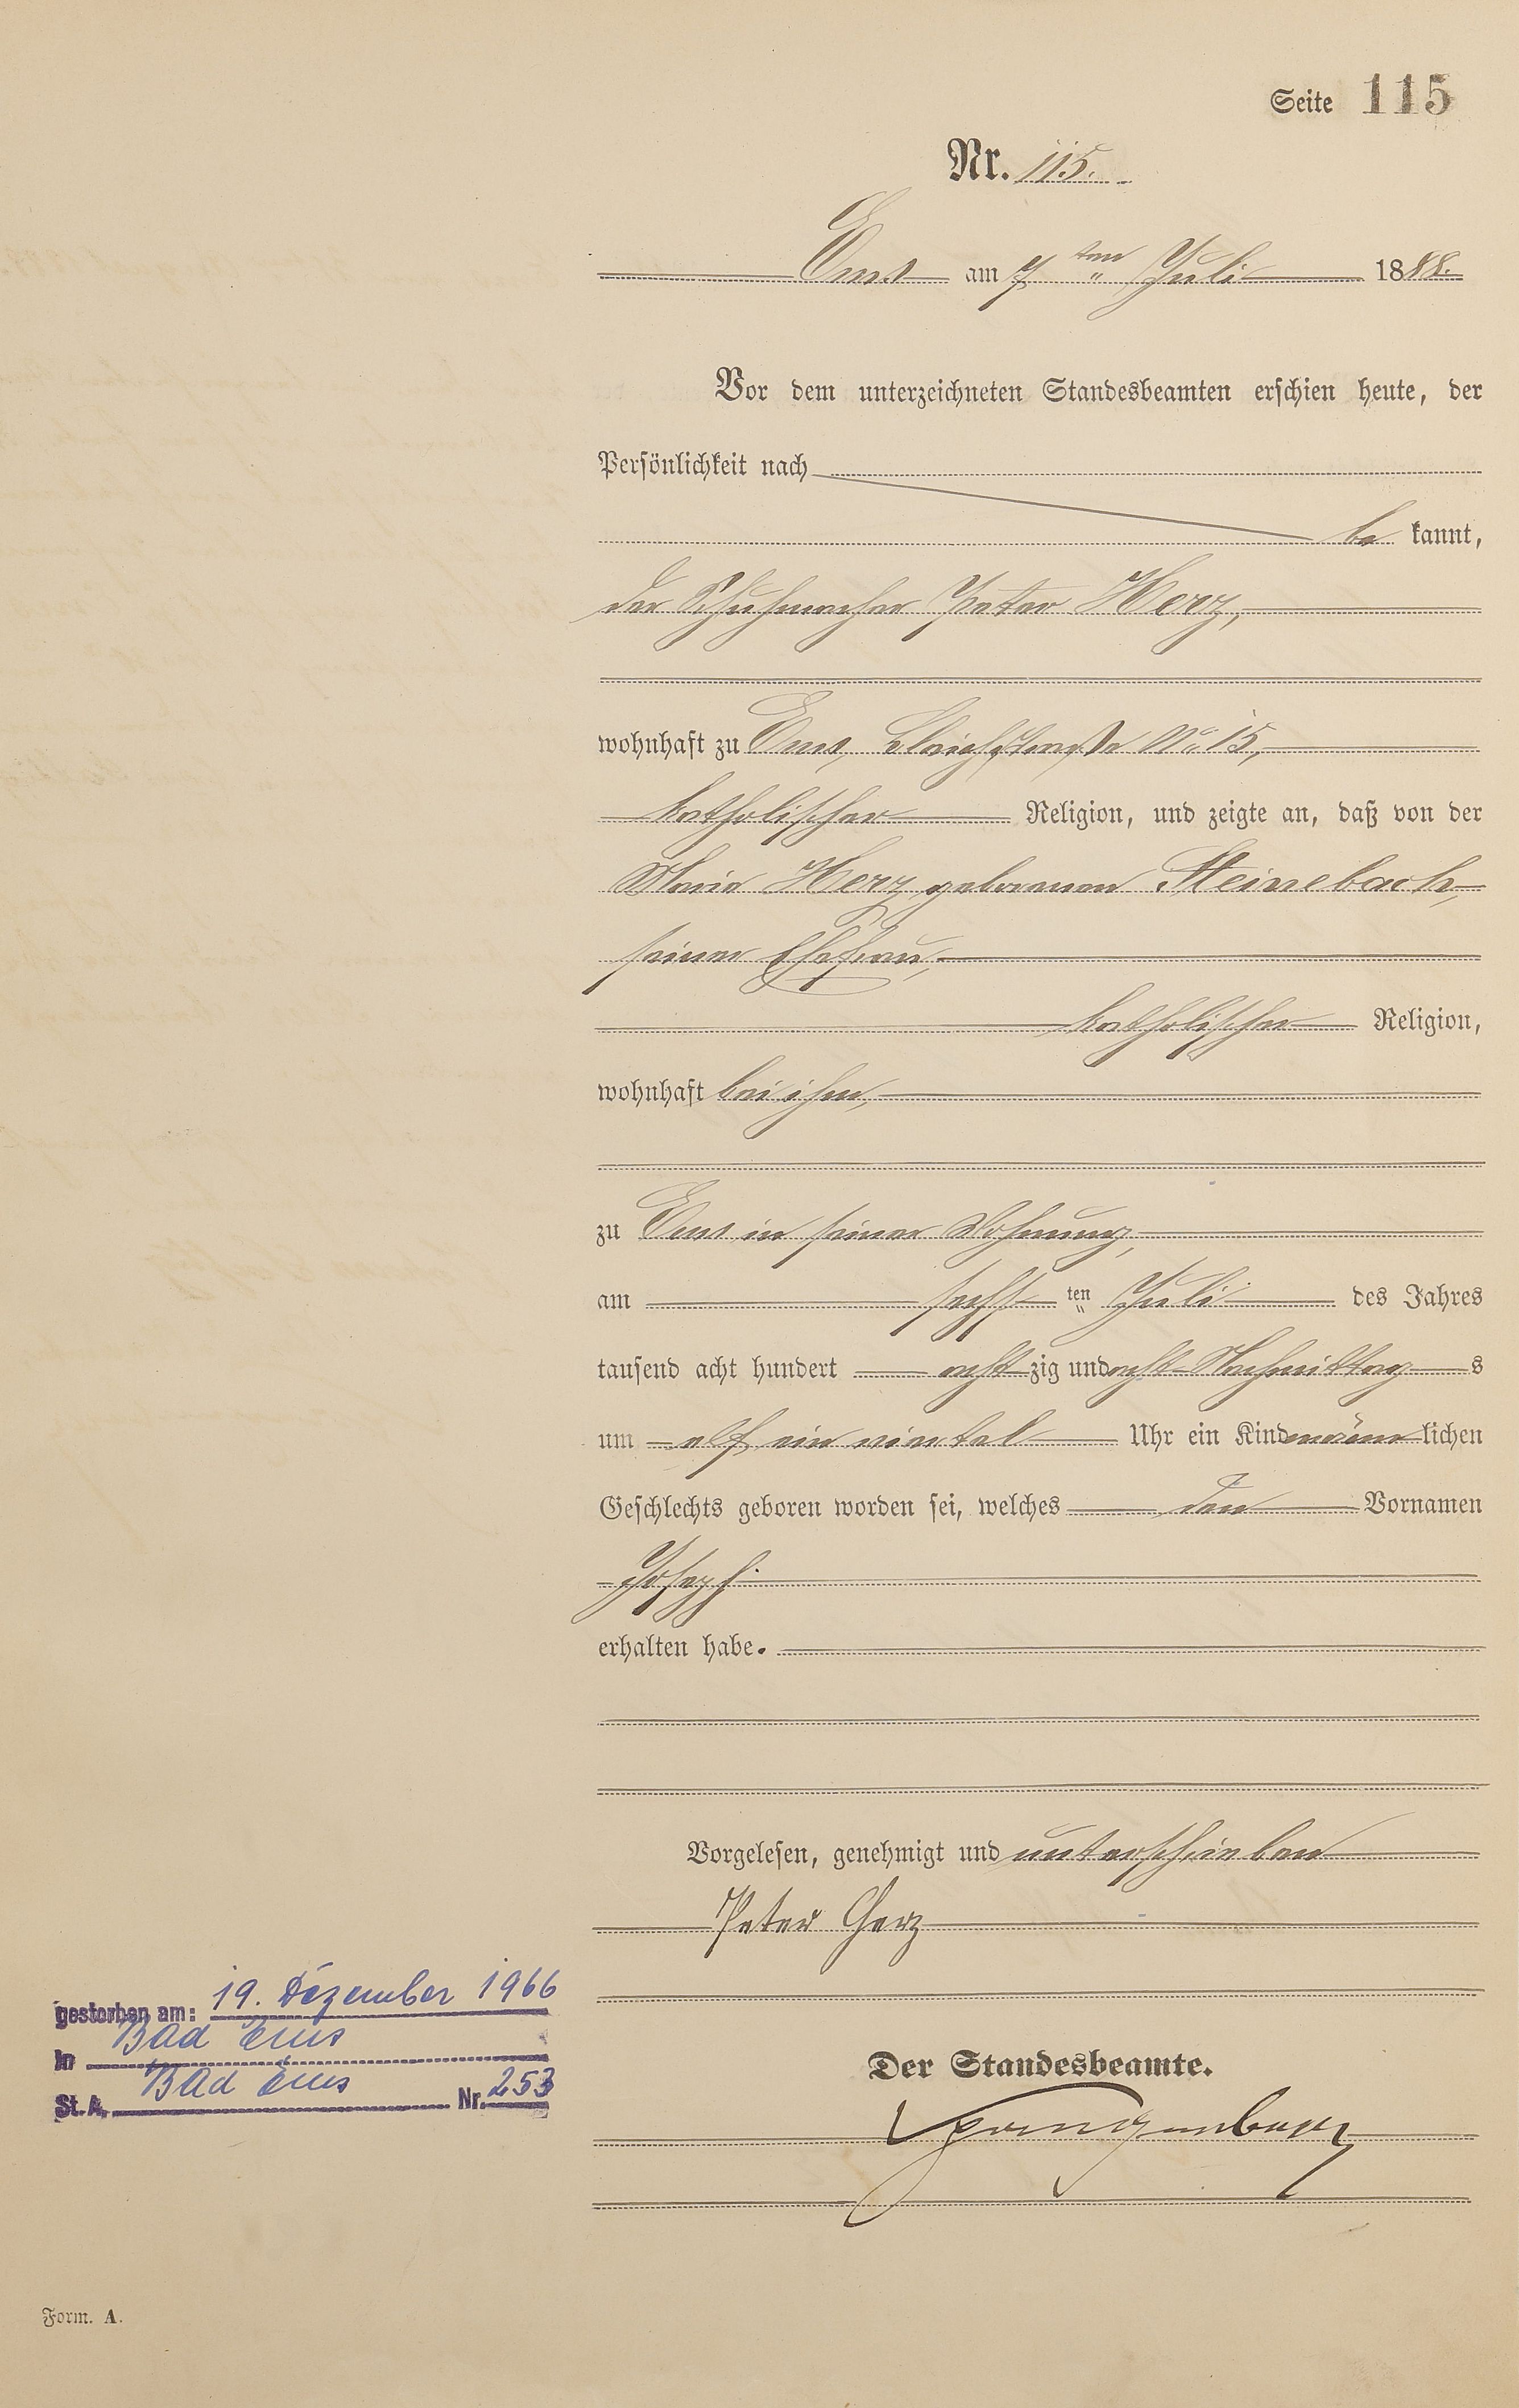 Seite 115
Nr. 115.
Ems am 7ten Juli 1888.
Vor dem unterzeichneten Standesbeamten erschien heute, der
Persönlichkeit nach
be kannt,
der Schuhmacher Peter Herz,
wohnhaft zu Ems, Bleichstraße No 15,
katholischer Religion, und zeigte an, daß von der
Maria Herz geborenen Steinebach,
seiner Ehefrau,
katholischer Religion,
wohnhaft bei ihm,
zu Ems in seiner Wohnung,
am sechsten Juli des Jahres
tausend acht hundert achtzig und acht Nachmittags
um elf ein viertel Uhr ein Kind männlichen
Geschlechts geboren worden sei, welches den Vornamen
Joseph
erhalten habe.
Vorgelesen, genehmigt und unterschrieben
Peter Herz
gestorben am: 19. Dezember 1966
in Bad Ems
St. A. Bad Ems Nr. 253
Der Standesbeamte.
Form. A.